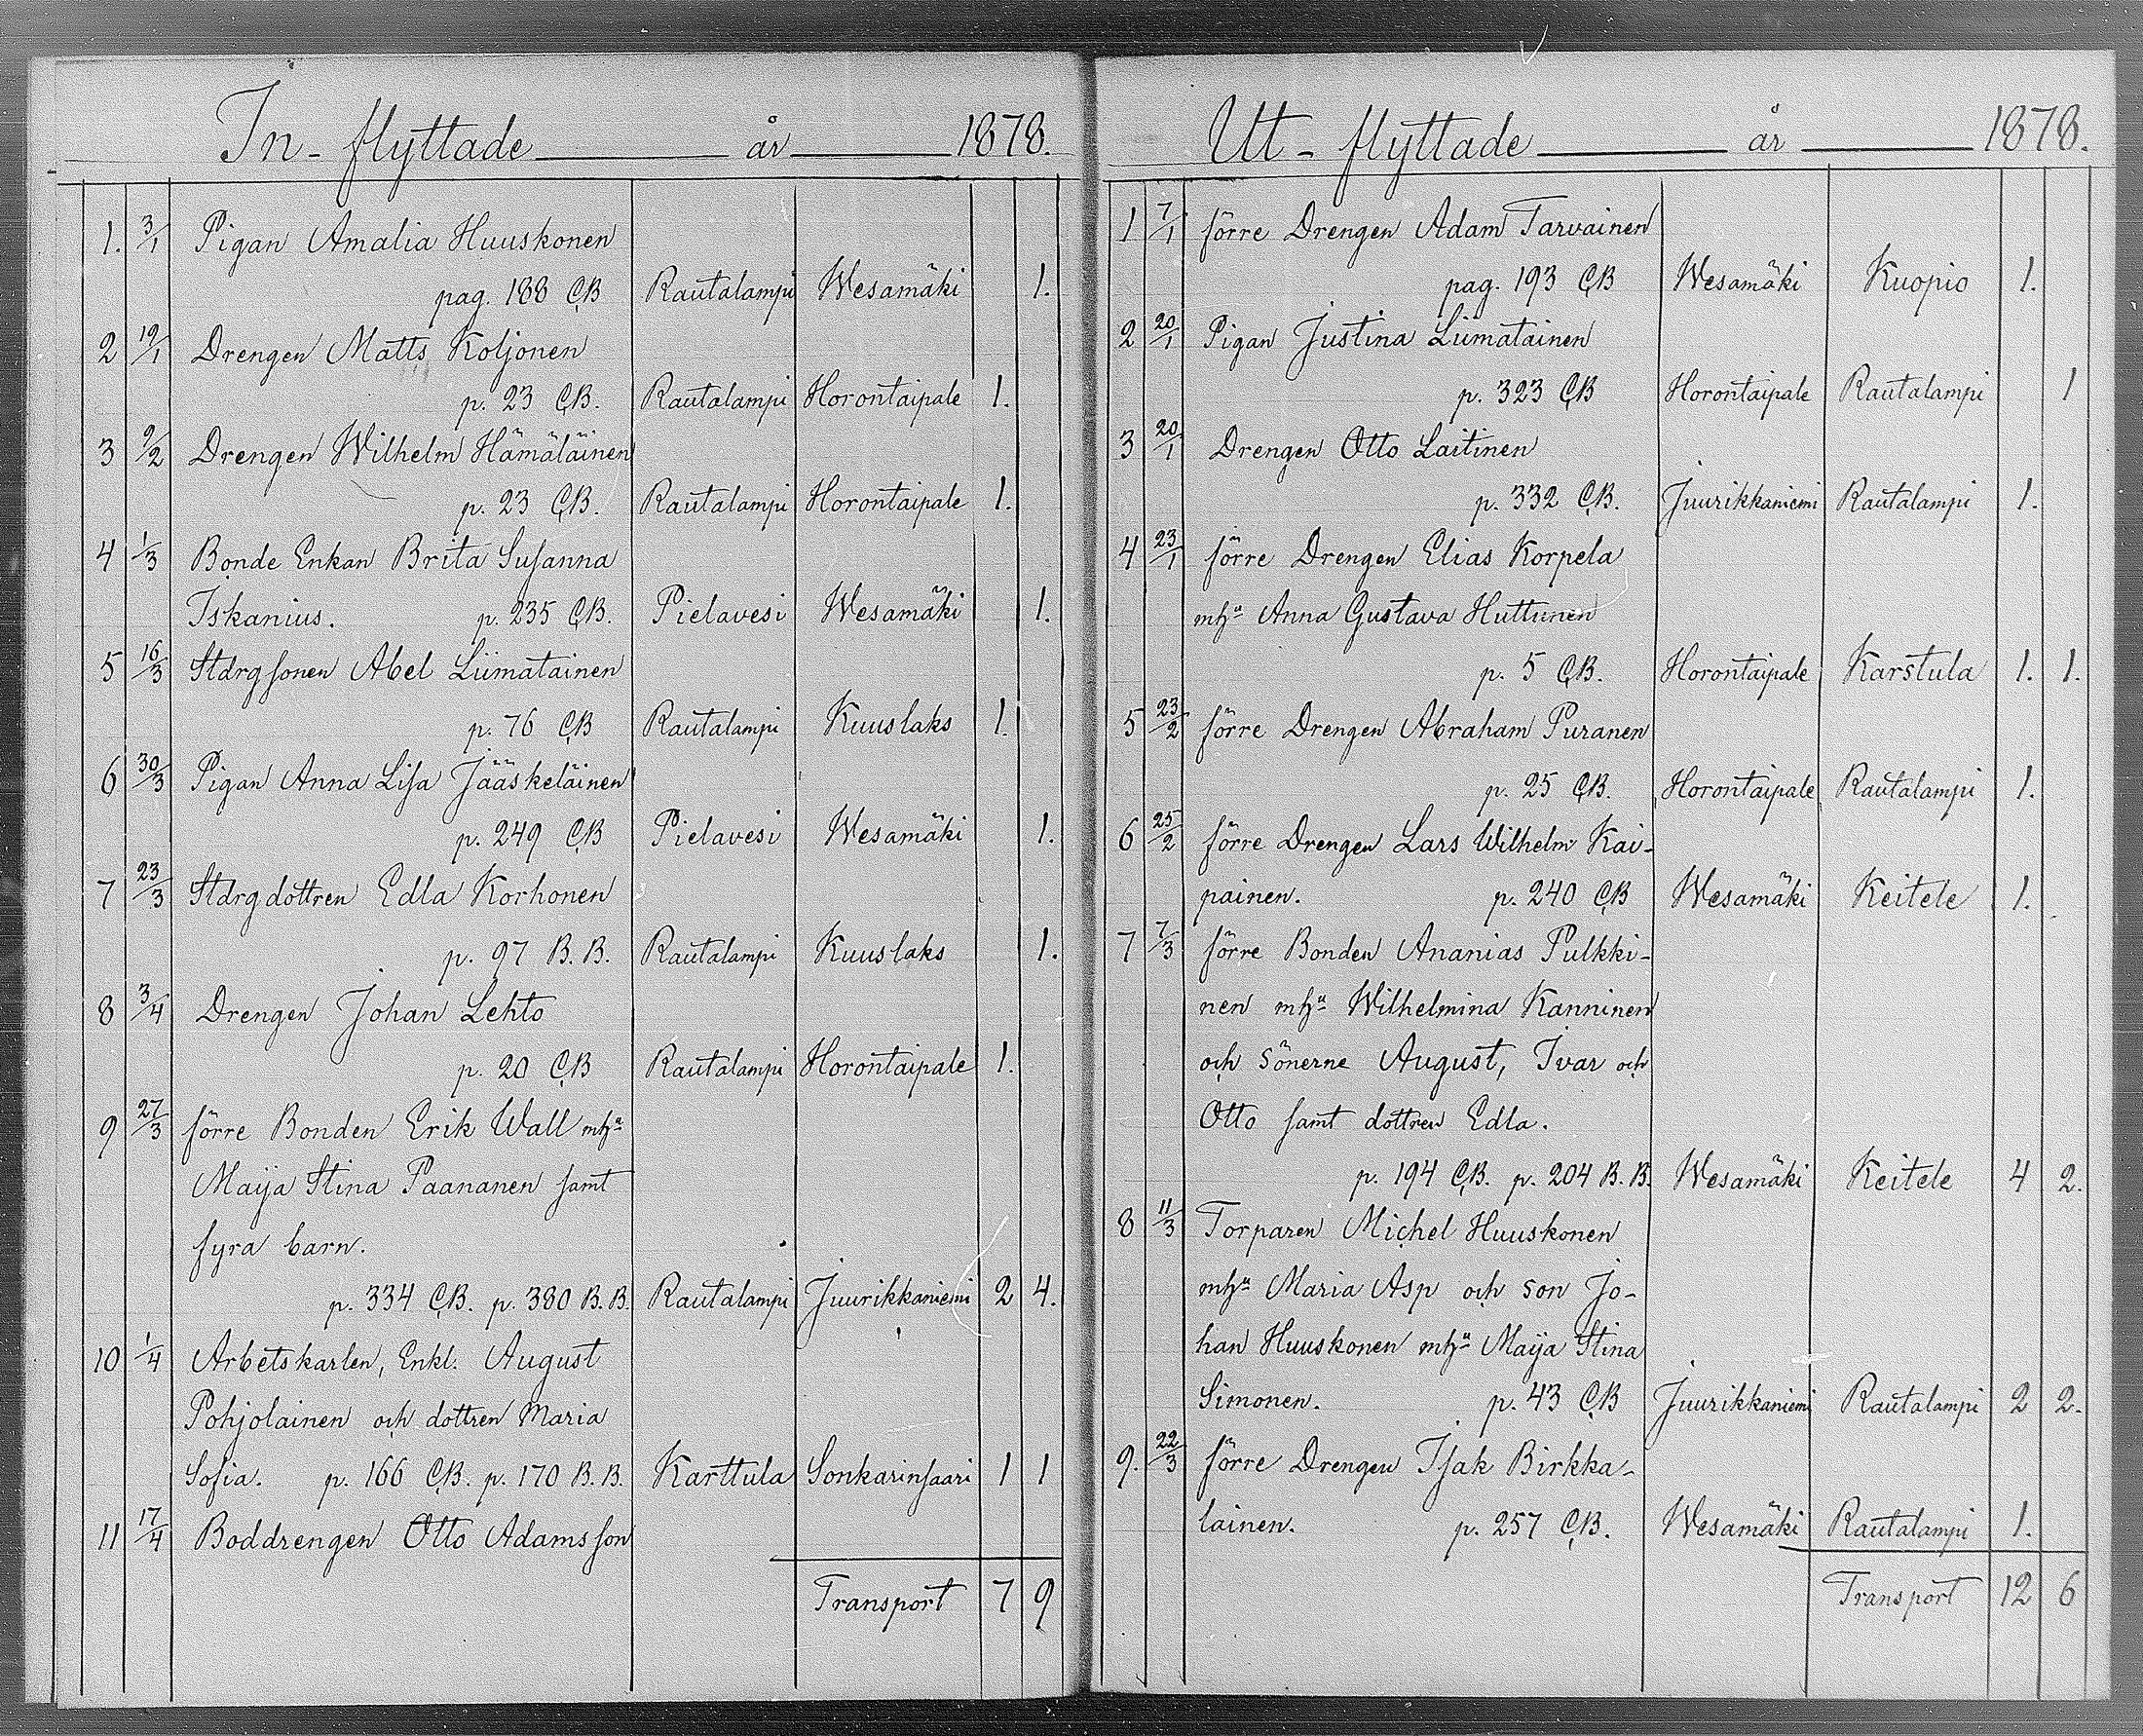 In-flyttade år 1878.
1. 3/1 Pigan Amalia Huuskonen
pag. 188 C,B Rautalampi Wesamäki 1.
2 19/1 Drengen Matts Koljonen
p. 23 C,B. Rautalampi Horontaipale 1.
3 9/2 Drengen Wilhelm Hämäläinen
p. 23 C,B. Rautalampi Horontaipale 1.
4 1/3 Bonde Enkan Brita Susanna
Iskanius. p. 235 C,B. Pielavesi Wesamäki 1.
5 16/3 Stdrgsonen Abel Liimatainen
p. 76 C,B Rautalampi Kuuslaks 1.
6 30/3 Pigan Anna Lisa Jääskeläinen
p. 249 C,B Pielavesi Wesamäki 1.
7 23/3 Stdrgdottren Edla Korhonen
p. 97 B.B. Rautalampi Kuuslaks 1.
8 3/4 Drengen Johan Lehto
p. 20 C,B Rautalampi Horontaipale 1.
9 27/3 förre Bonden Erik Wall mhu
Maija Stina Paananen samt
fyra barn.
p. 334 C,B. p. 380 B.B. Rautalampi Juurikkaniemi 2 4.
10 1/4 Arbetskarlen, Enkl. August
Pohjolainen och dottren Maria
Sofia. p. 166 C,B. p. 170 B.B. Karttula Sonkarinsaari 1 1
11 17/4 Boddrengen Otto Adamsson
Transport 7 9
Ut-flyttade år 1878.
1 7/1 förre Drengen Adam Tarvainen
pag. 193 C,B Wesamäki Kuopio 1.
2 20/1 Pigan Justina Liimatainen
p. 323 C,B Horontaipale Rautalampi 1
3 20/1 Drengen Otto Laitinen
p. 332 C,B. Juurikkaniemi Rautalampi 1.
4 23/1 förre Drengen Elias Korpela
mhu Anna Gustava Huttunen
p. 5 C,B. Horontaipale Karstula 1. 1.
5 23/2 förre Drengen Abraham Puranen
p. 25 C,B. Horontaipale Rautalampi 1.
6 25/2 förre Drengen Lars Wilhelm Kai-
painen. p. 240 C,B Wesamäki Keitele 1.
7 7/3 förre Bonden Ananias Pulkki-
nen mhu Wilhelmina Kanninen
och sönerne August, Ivar och
Otto samt dottren Edla.
p. 194 C,B. p. 204 B.B. Wesamäki Keitele 4 2.
8 11/3 Torparen Michel Huuskonen
mhu Maria Asp och son Jo-
han Huuskonen mhu Maija Stina
Simonen. p. 43 C,B Juurikkaniemi Rautalampi 2 2.
9. 22/3 förre Drengen Isak Birkka-
lainen. p. 257 C,B. Wesamäki Rautalampi 1.
Transport 12 6